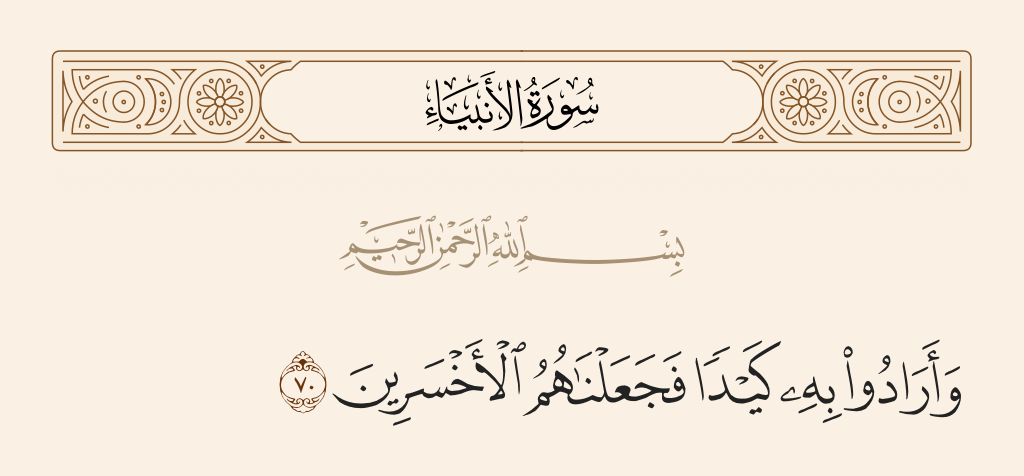 سُورَةُ الأَنبِيَاءِ
بِسْمِ ٱللَّهِ ٱلرَّحْمَٰنِ ٱلرَّحِيمِ
وَأَرَادُوا۟ بِهِۦ كَيْدًا فَجَعَلْنَٰهُمُ ٱلْأَخْسَرِينَ ٧٠